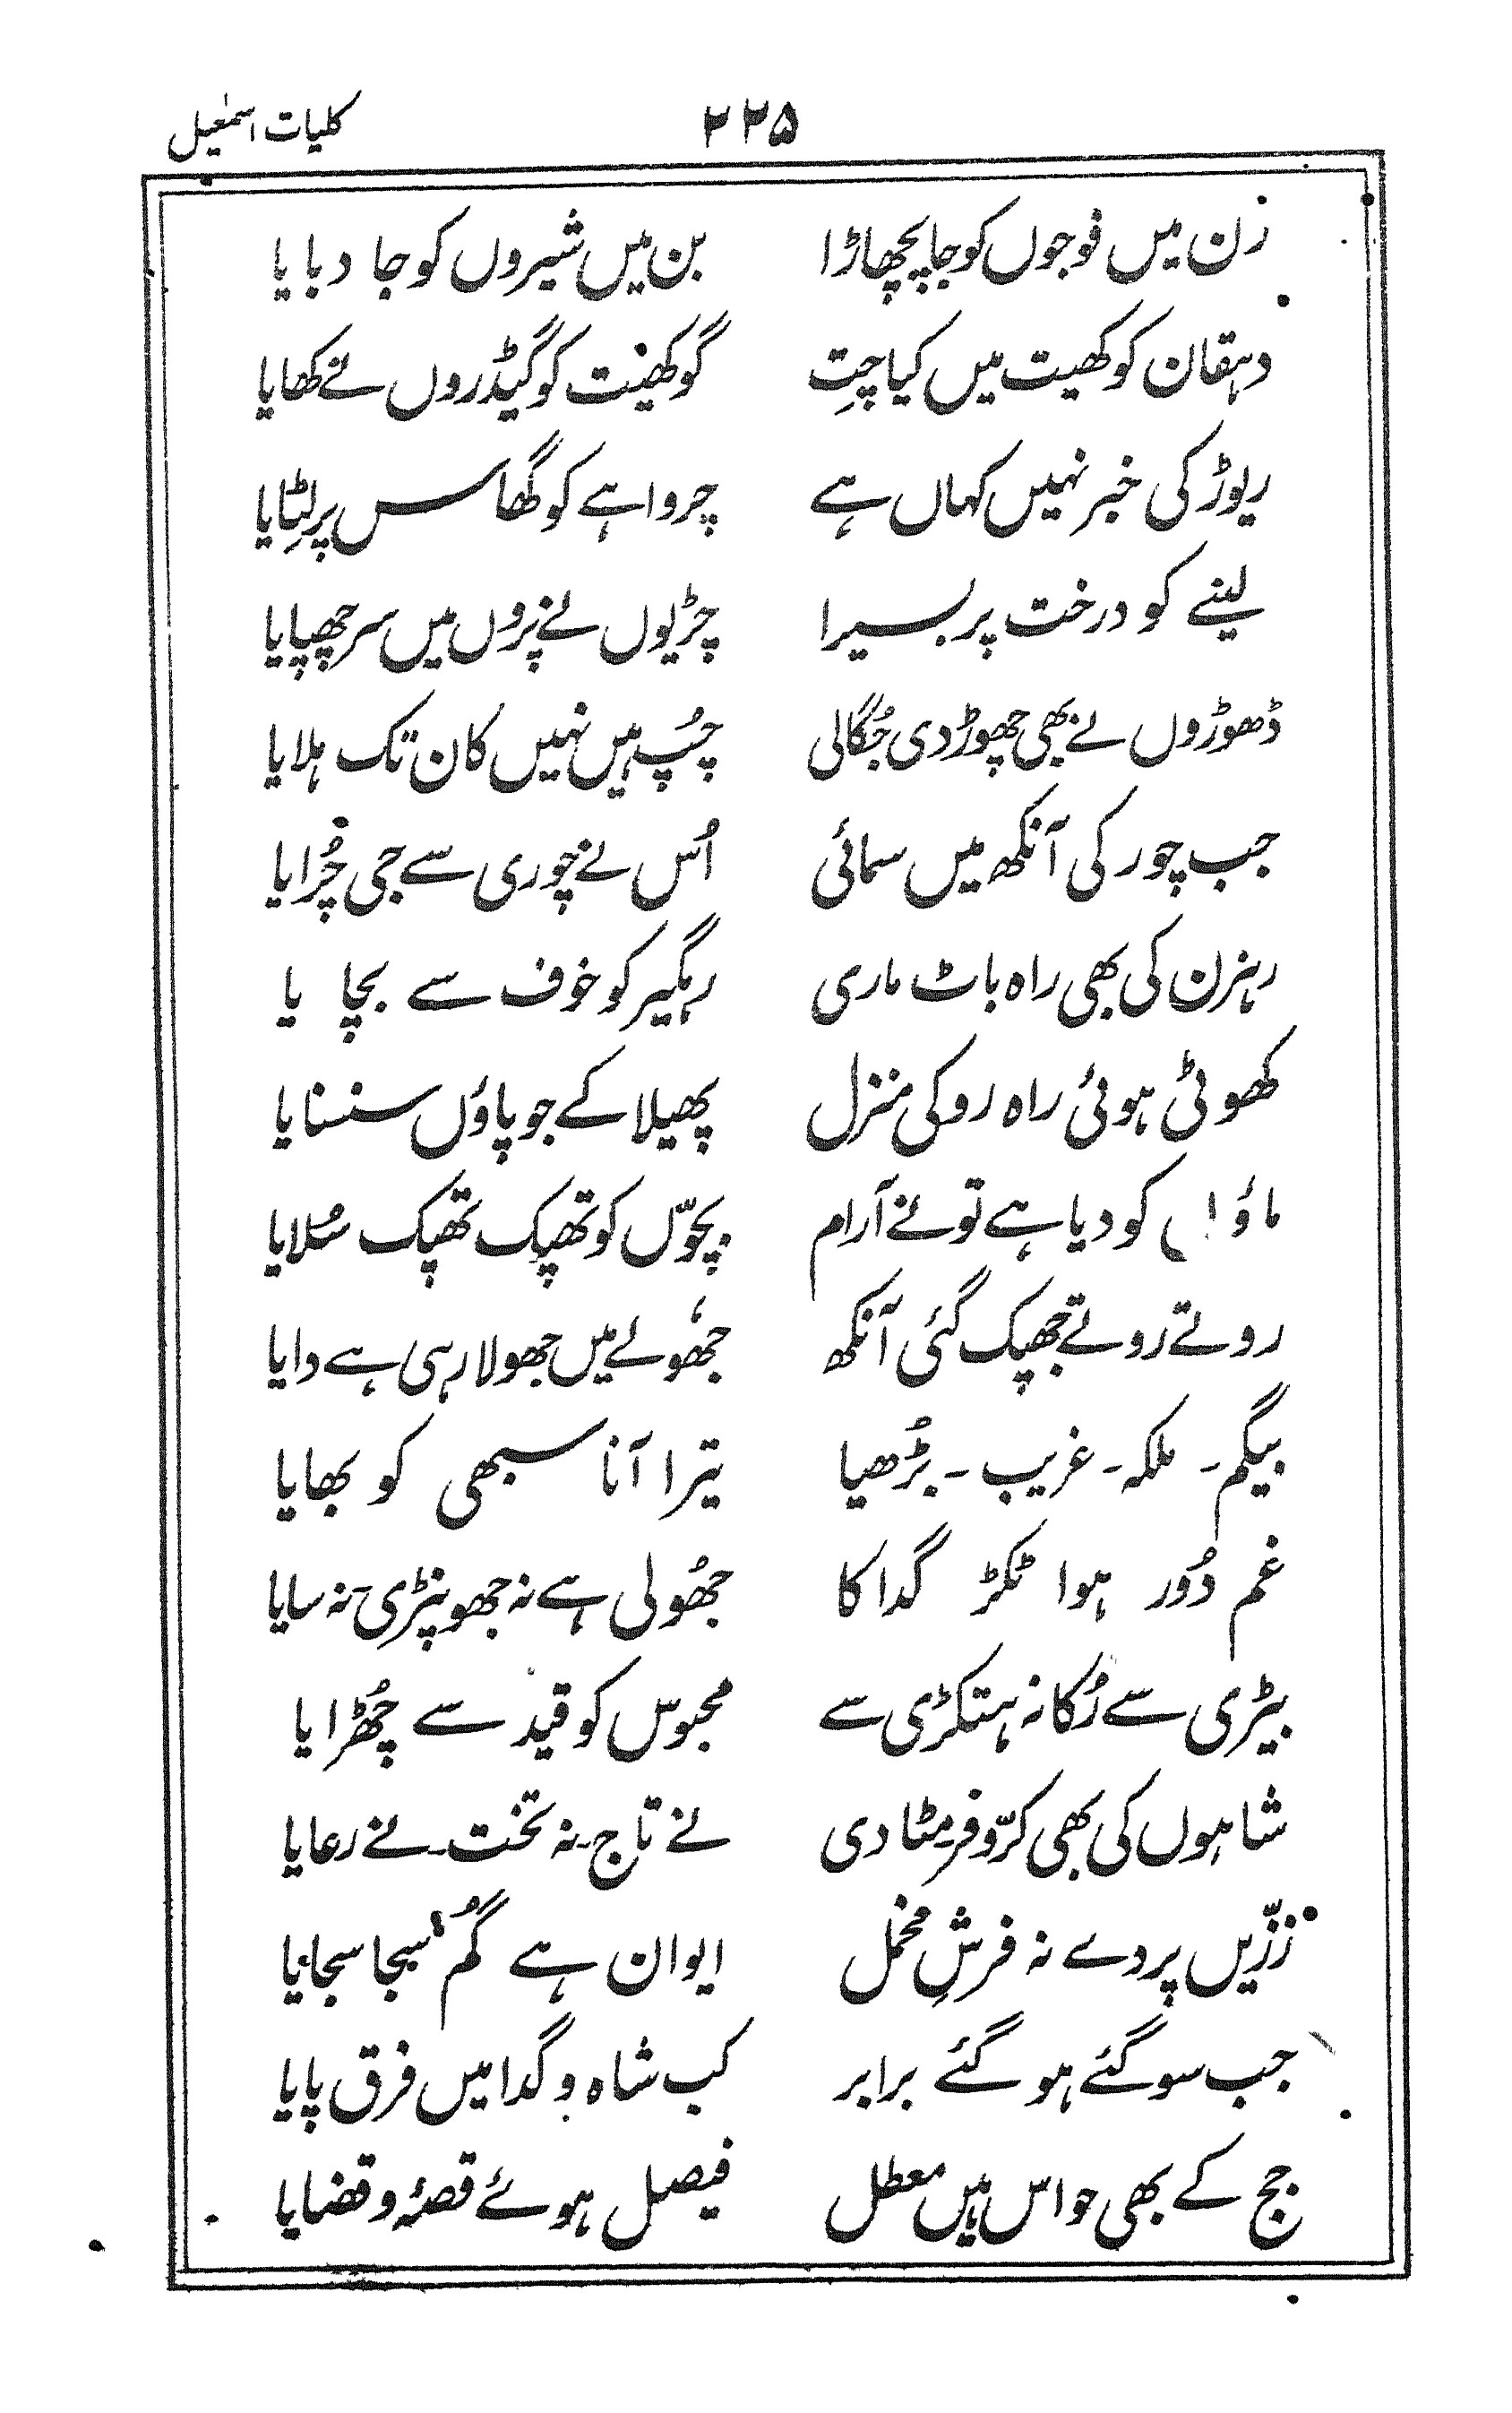 ۲۲۵ کلیات اسمٰعیل
رن میں فوجوں کو جا پچھاڑا بن میں شیروں کو جا دبایا
دہقان کو کھیت میں کیا چِت گو کھیت کو گیڈروں نے کھایا
ریوڑ کی خبر نہیں کہاں ہے چرواہے کو گھاس پر لِٹایا
لینے کو درخت پر بسیرا چڑیوں نے پروں میں سر چھپایا
ڈھوڑوں نے بھی چھوڑ دی جُگالی چُپ ہیں نہیں کان تک ہلایا
جب چور کی آنکھ میں سمائی اُس نے چوری سے جی چُرایا
رہزن کی بھی راہ باٹ ماری رہگیر کو خوف سے بچایا
کھوٹی ہوئی راہ رو کی منزل پھیلا کے جو پاؤں سنسنایا
ماؤں کو دیا ہے تو نے آرام بچّوں کو تھپک تھپک سُلایا
روتے روتے جھپک گئی آنکھ جھُولے میں جھولا رہی ہے دایا
بیگم ۔ ملکہ ۔ غریب ۔ بُڑھیا تیرا آنا سبھی کو بھایا
غم دُور ہوا ٹکڑ گدا کا جھُولی ہے نہ جھونپڑی نہ سایا
بیڑی سے رُکا نہ ہتکڑی سے محبوس کو قید سے چھُڑایا
شاہوں کی بھی کرّوفر مِٹا دی نے تاج ۔ نہ تخت ۔ نے رعایا
زرّیں پردے نہ فرشِ مخمل ایوان ہے گُم سجا سجایا
جب سو گئے ہو گئے برابر کب شاہ و گدا میں فرق پایا
جج کے بھی حواس ہیں معطل فیصل ہوئے قصۂ و قضایا